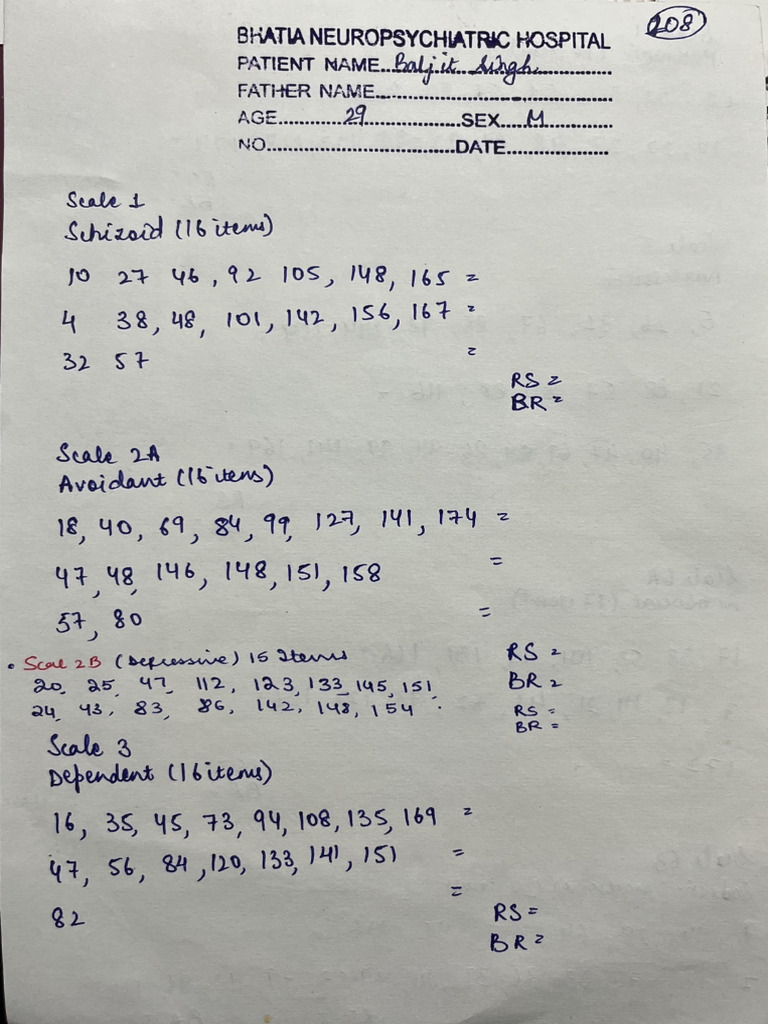 208
BHATIA NEUROPSYCHIATRIC HOSPITAL
PATIENT NAME...Baljit Singh...............
FATHER NAME.......................................
AGE............29...................SEX....M............
NO.................................DATE..................
Scale 1
Schizoid (16 items)
10 27 46, 92 105, 148, 165 =
4 38, 48, 101, 142, 156, 167 =
32 57 =
RS =
BR =
Scale 2A
Avoidant (16 items)
18, 40, 69, 84, 99, 127, 141, 174 =
47, 48, 146, 148, 151, 158 =
57, 80 =
RS =
BR =
• Scale 2B (Depressive) 15 Items
20, 25, 47, 112, 123, 133, 145, 151
24, 43, 83, 86, 142, 148, 154
RS =
BR =
Scale 3
Dependent (16 items)
16, 35, 45, 73, 94, 108, 135, 169 =
47, 56, 84, 120, 133, 141, 151 =
82 =
RS =
BR =